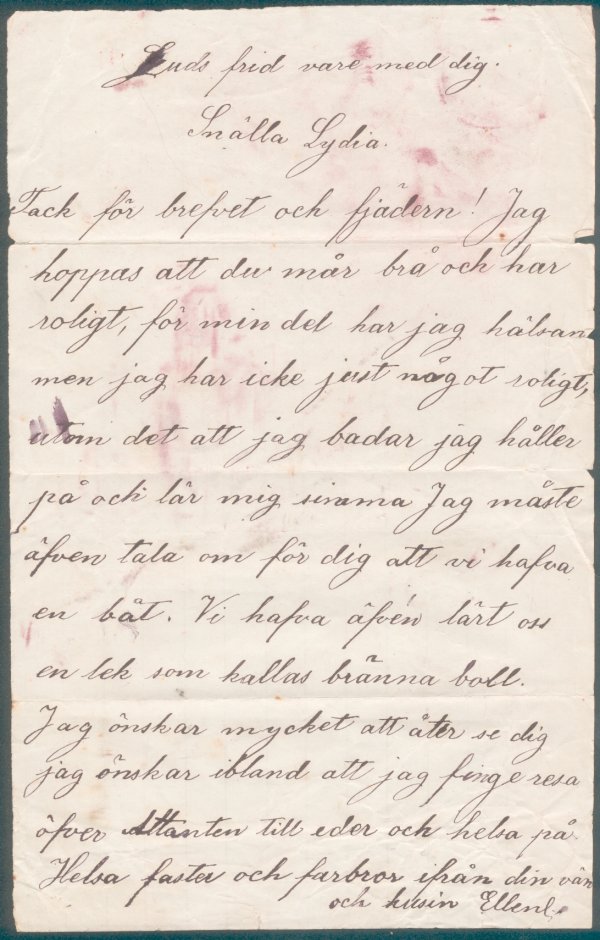 Guds frid vare med dig.
Snälla Lydia.
Tack för brefvet och fjädern! Jag
hoppas att du mår brå och har
roligt, för min del har jag hälsan
men jag har icke just något roligt,
utom det att jag badar jag håller
på och lär mig simma Jag måste
äfven tala om för dig att vi hafva
en båt. Vi hafva äfven lärt oss
en lek som kallas bränna boll.
Jag önskar mycket att åter se dig
jag önskar ibland att jag finge resa
öfver Attanten till eder och helsa på.
Helsa faster och farbror ifrån din vän
och kusin Ellen